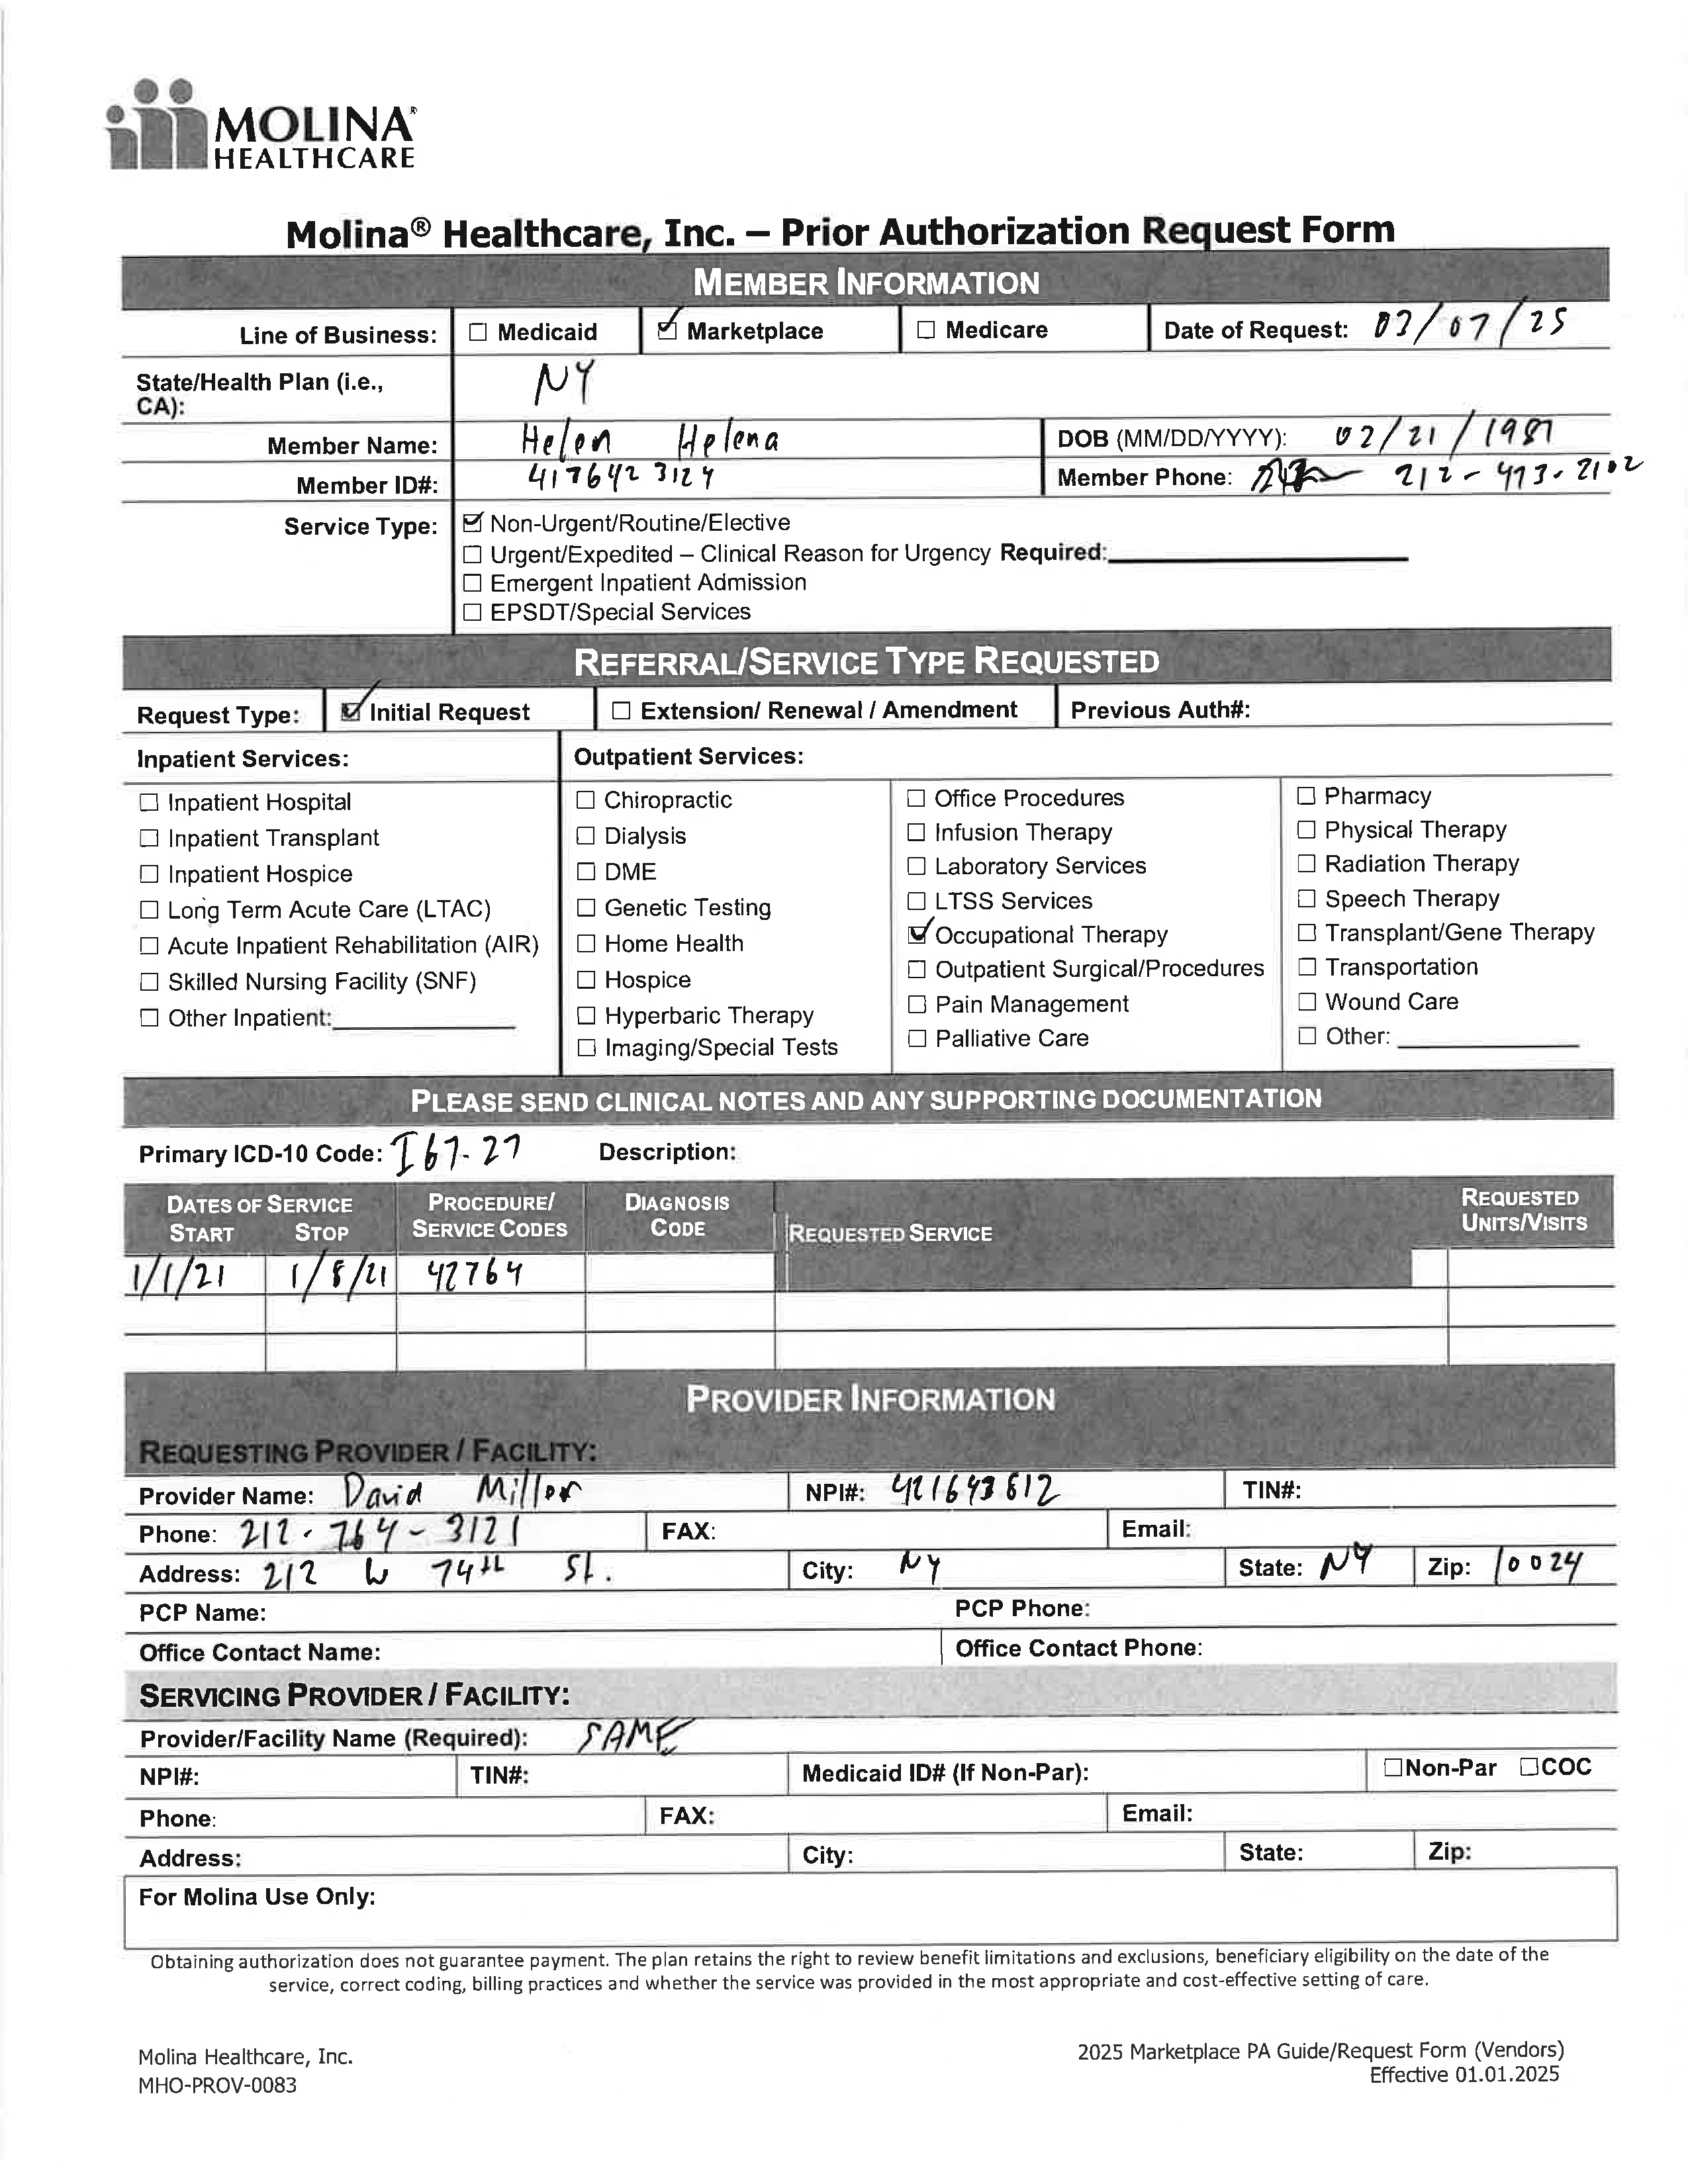 MOLINA®
HEALTHCARE
Molina® Healthcare, Inc. – Prior Authorization Request Form
MEMBER INFORMATION
Line of Business: ☐ Medicaid ☑ Marketplace ☐ Medicare Date of Request: 07/25
State/Health Plan (i.e., CA): NY
Member Name: Helen Helena DOB (MM/DD/YYYY): 02/21/1981
Member ID#: 417642 3124 Member Phone: 212-413-2102
Service Type: ☑ Non-Urgent/Routine/Elective
☐ Urgent/Expedited – Clinical Reason for Urgency Required:
☐ Emergent Inpatient Admission
☐ EPSDT/Special Services
REFERRAL/SERVICE TYPE REQUESTED
Request Type: ☑ Initial Request ☐ Extension/ Renewal / Amendment Previous Auth#:
Inpatient Services:
☐ Inpatient Hospital
☐ Inpatient Transplant
☐ Inpatient Hospice
☐ Long Term Acute Care (LTAC)
☐ Acute Inpatient Rehabilitation (AIR)
☐ Skilled Nursing Facility (SNF)
☐ Other Inpatient:
Outpatient Services:
☐ Chiropractic
☐ Dialysis
☐ DME
☐ Genetic Testing
☐ Home Health
☐ Hospice
☐ Hyperbaric Therapy
☐ Imaging/Special Tests
☐ Office Procedures
☐ Infusion Therapy
☐ Laboratory Services
☐ LTSS Services
☑ Occupational Therapy
☐ Outpatient Surgical/Procedures
☐ Pain Management
☐ Palliative Care
☐ Pharmacy
☐ Physical Therapy
☐ Radiation Therapy
☐ Speech Therapy
☐ Transplant/Gene Therapy
☐ Transportation
☐ Wound Care
☐ Other:
PLEASE SEND CLINICAL NOTES AND ANY SUPPORTING DOCUMENTATION
Primary ICD-10 Code: I67.27 Description:
DATES OF SERVICE START STOP PROCEDURE/ SERVICE CODES DIAGNOSIS CODE REQUESTED SERVICE REQUESTED UNITS/VISITS
1/1/21 1/8/21 42764
PROVIDER INFORMATION
REQUESTING PROVIDER / FACILITY:
Provider Name: David Miller NPI#: 421643612 TIN#:
Phone: 212-764-3121 FAX: Email:
Address: 212 W 74th St. City: NY State: NY Zip: 10024
PCP Name: PCP Phone:
Office Contact Name: Office Contact Phone:
SERVICING PROVIDER / FACILITY:
Provider/Facility Name (Required): SAME
NPI#: TIN#: Medicaid ID# (If Non-Par): ☐Non-Par ☐COC
Phone: FAX: Email:
Address: City: State: Zip:
For Molina Use Only:
Obtaining authorization does not guarantee payment. The plan retains the right to review benefit limitations and exclusions, beneficiary eligibility on the date of the
service, correct coding, billing practices and whether the service was provided in the most appropriate and cost-effective setting of care.
Molina Healthcare, Inc. 2025 Marketplace PA Guide/Request Form (Vendors)
MHO-PROV-0083 Effective 01.01.2025